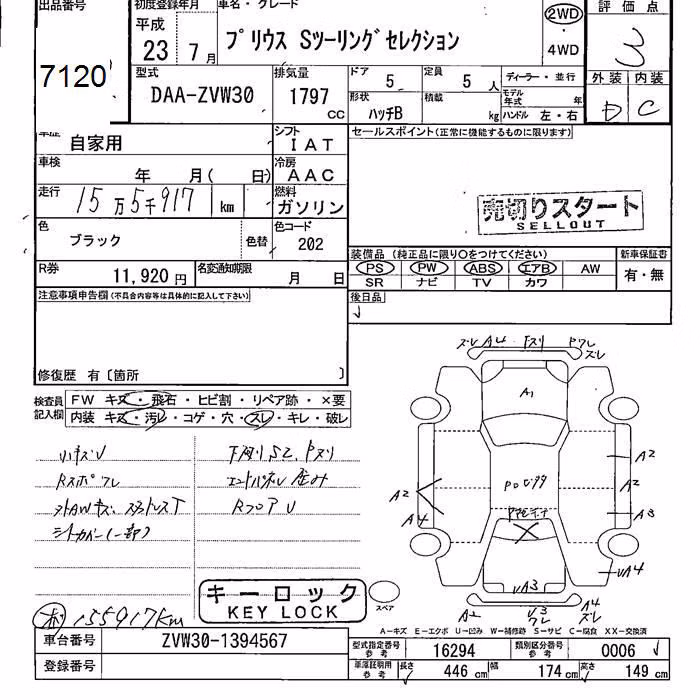 出品番号
7120
初度登録年月
平成
23 7月
車名・グレード
プリウス Sツーリングセレクション
2WD
4WD
評価点
3
外装 内装
D C
型式
DAA-ZVW30
排気量
1797
CC
ドア 5
定員 5 人
形状 ハッチB
積載 kg
ディーラー・並行
モデル年式 年
ハンドル 左・右
車歴 自家用
シフト IAT
車検 年 月( 日)
冷房 AAC
走行 15万5千917 km
燃料 ガソリン
色 ブラック
色替
色コード 202
R券 11,920円
名変通知期限 月 日
セールスポイント(正常に機能するものに限ります)
売切りスタート
SELLOUT
装備品(純正品に限り○をつけてください)
新車保証書
PS PW ABS エアB AW
SR ナビ TV カワ
有・無
後日品
注意事項申告欄(不具合内容等は具体的に記入して下さい)
修復歴 有〔箇所 〕
検査員記入欄
FW キズ・飛石・ヒビ割・リペア跡・×要
内装 キズ・汚レ・コゲ・穴・スレ・キレ・破レ
小キズU
Rスポ ワレ
シートカバー(一部)
RフロアU
155917km
キーロック
KEY LOCK
スペア
ズレ A4
ズレ
A1
A2
A4
A2
A2
A3
UA4
UA3
A2
U3
ワレ
A4
ズレ
A-キズ E-エクボ U-凹み W-補修跡 S-サビ C-腐食 XX-交換済
車台番号 ZVW30-1394567
登録番号
型式指定番号 参考 16294
類別区分番号 参考 0006
車庫証明用 参考
長さ 446 cm
幅 174 cm
高さ 149 cm